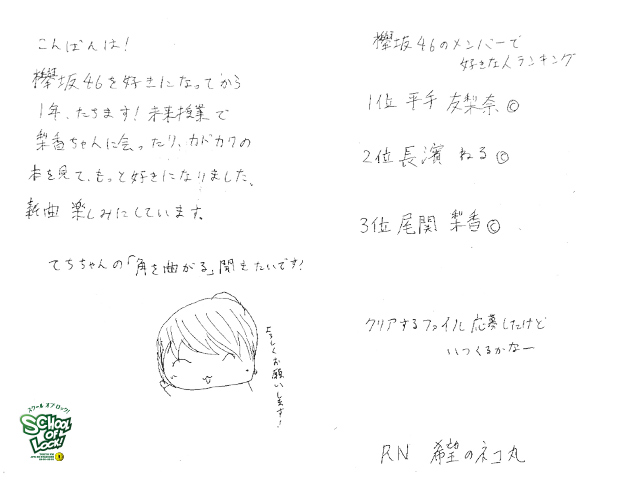 こんばんは!
欅坂46を好きになってから
1年、たちます!未来授業で
梨香ちゃんに会ったり、カドカワの
本を見て、もっと好きになりました。
新曲 楽しみにしています。
てちちゃんの「角を曲がる」聞きたいです!
よろしくお願いします!
スクール オブ ロック!
SCHOOL
OF
LOCK!
欅坂46のメンバーで
好きな人ランキング
1位 平手 友梨奈©
2位 長濱 ねる©
3位 尾関 梨香©
クリアするファイル応募したけど
いつくるかなー
RN 希望のネコ丸